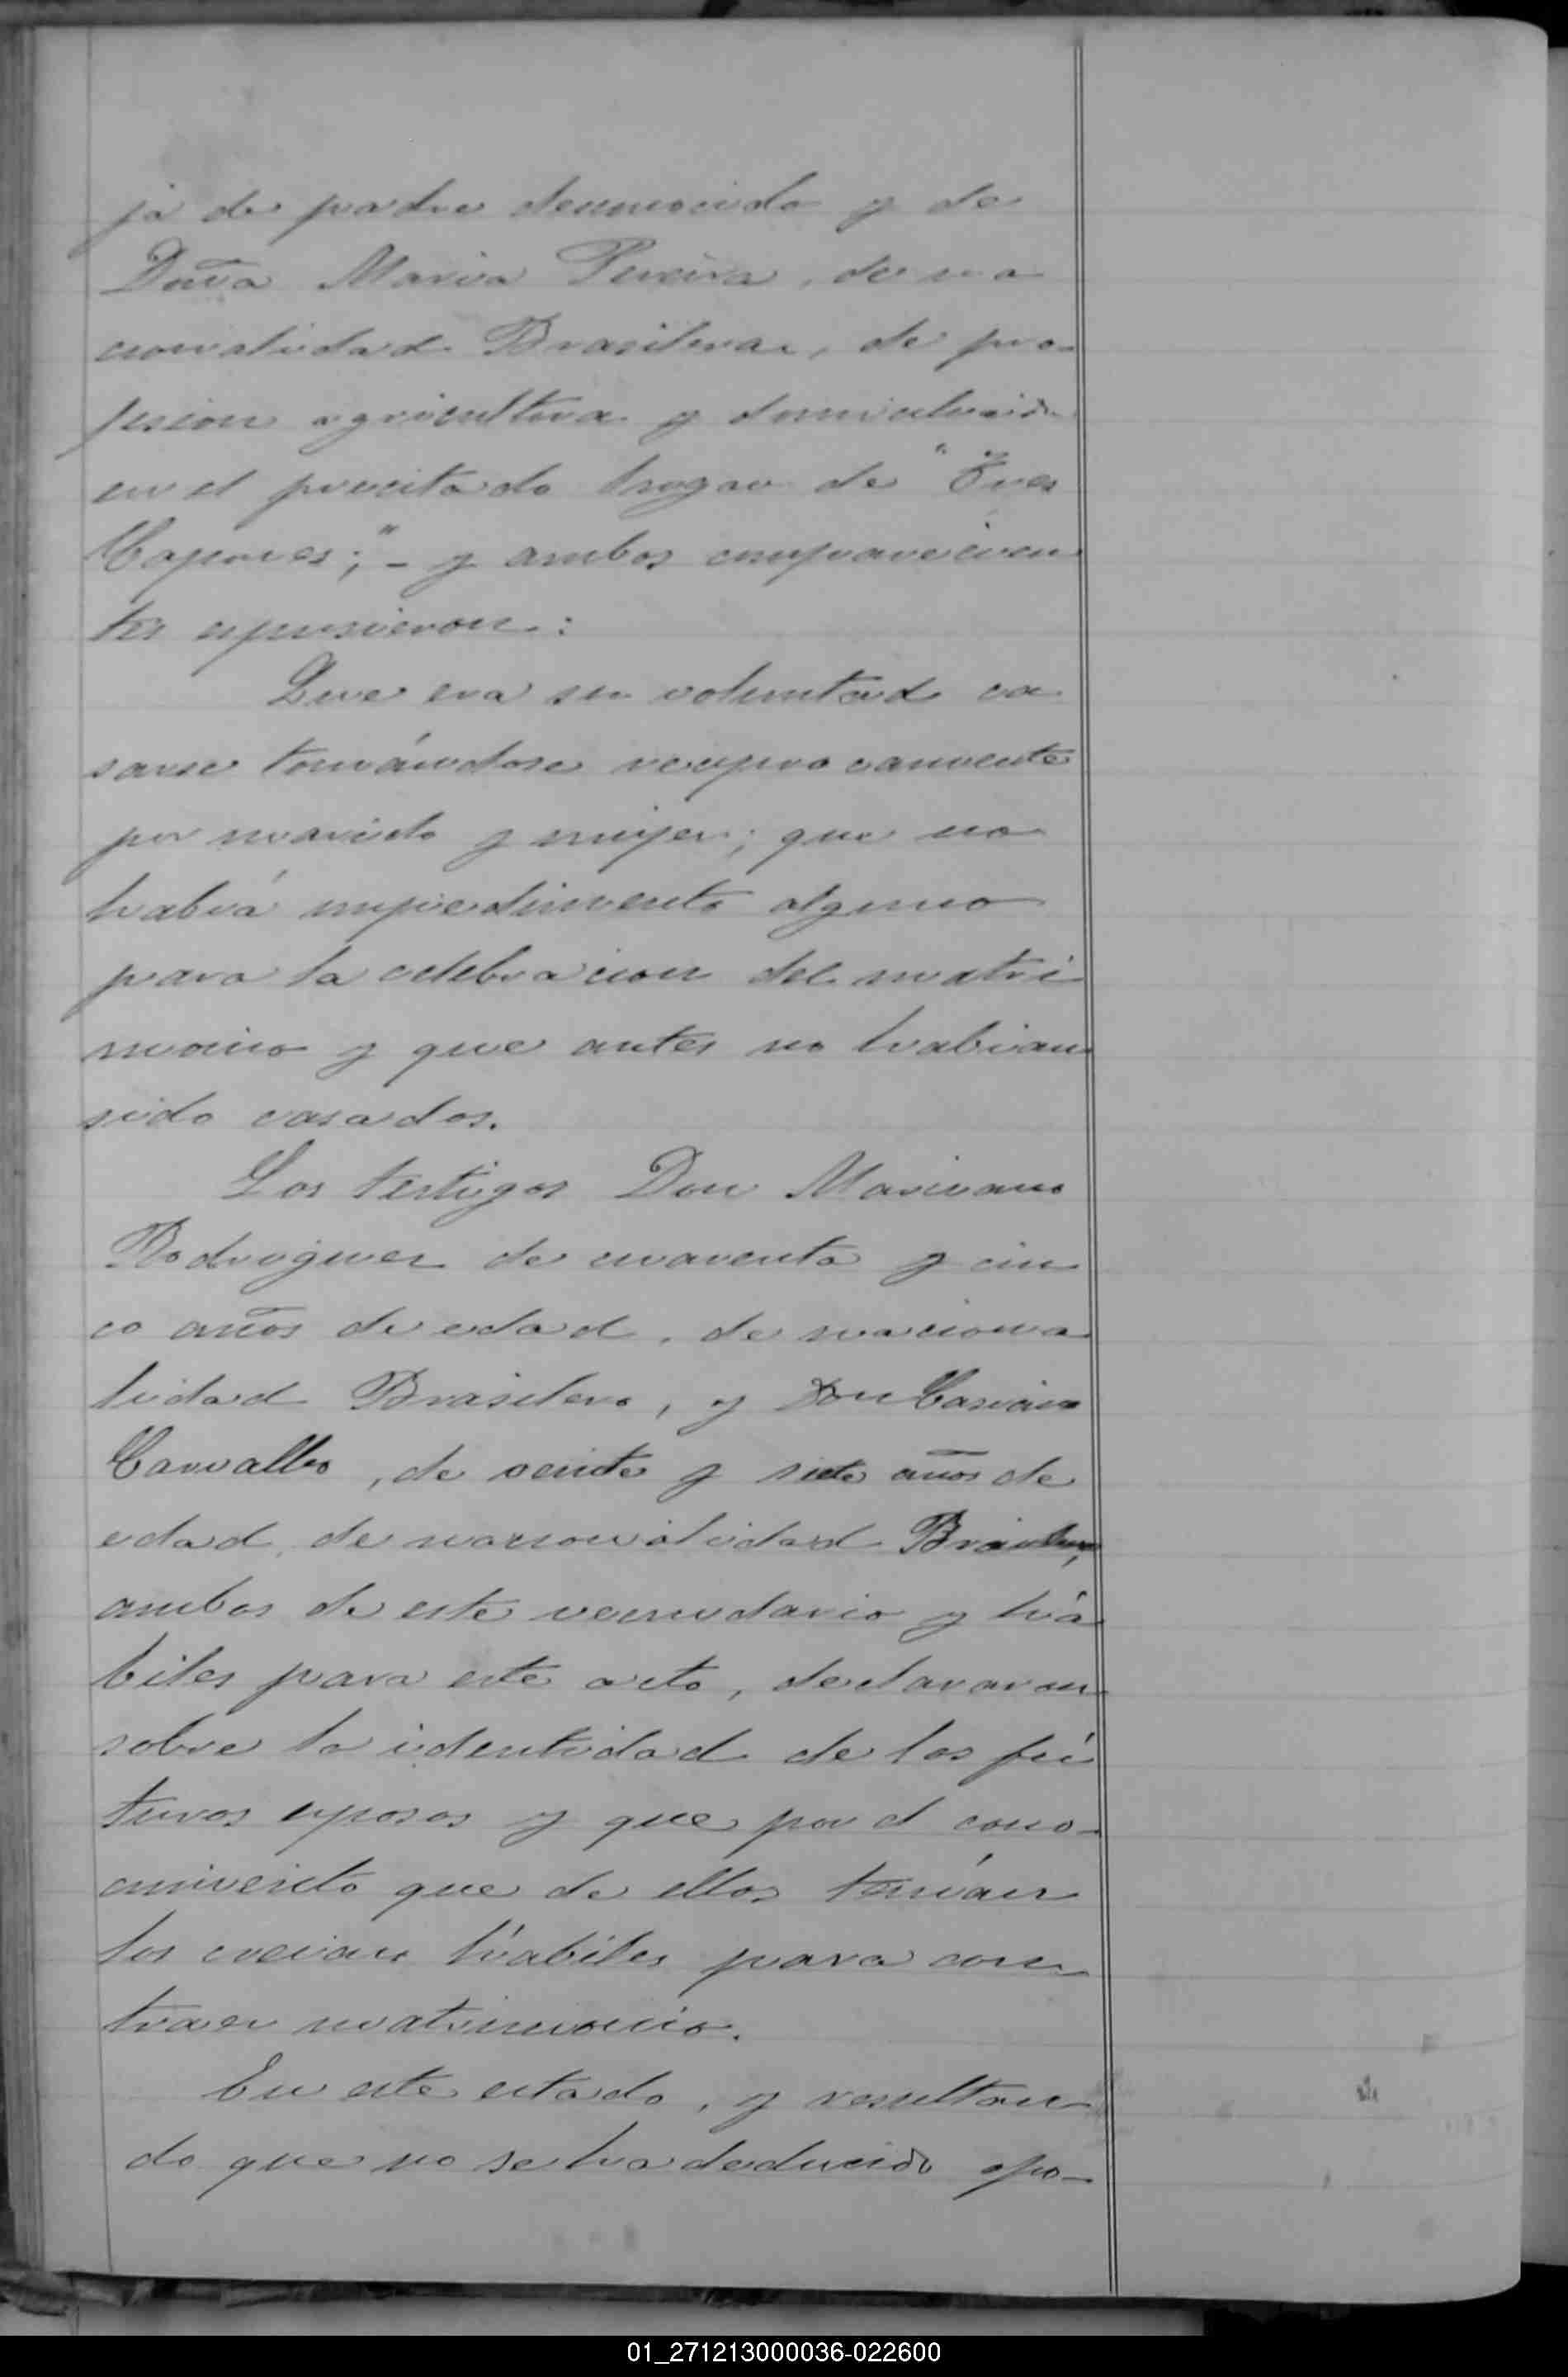 ja de padre desconocido y de
Doña Maria Pereira, de na
cionalidad Brasilera, de pro-
fesion agricultora y domiciliada
en el precitado hogar de "Tres
Capones;"- y ambos comparecien
tes expusieron:
Que era su voluntad ca
sarse tomándose reciprocamente
por marido y mujer; que no
habiá impedimento alguno
para la celebracion del matri
monio y que antes no habian
sido casados.
Los testigos Don Mariano
Rodriguez de cuarenta y cin
co años de edad, de naciona
lidad Brasilero, y Don
Carvallo, de veinte y siete años de
edad, de nacionalidad Brasilero,
ambos de este vecindario y há
biles para este acto, declararon
sobre la identidad de los fú
turos esposos y que por el cono-
cimiento que de ellos tenián
los creian hábiles para con
traer matrimonio.
En este estado, y resultan
do que no se ha deducido opo-
01_271213000036-022600